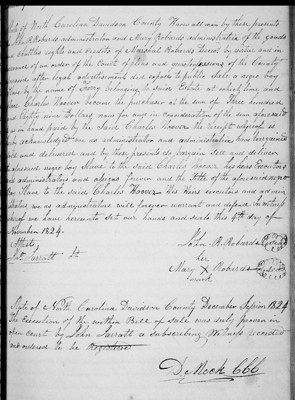 State of North Carolina Davidson County Know all men by these presents
John R Robards administrator and Mary Robards administratrix of the goods
and chattles rights and credits of Marshal Robards Decsd by virtue and in
persuance of an order of the Court of pleas and quarter sessions of the County
aforesaid after legal advertisement did expose to public sale a negro boy
Slave by the name of belonging to said Estate at which time and
place Charles Hoover became the purchaser at the sum of Three hundred
and Eighty nine Dollars now for and in consideration of the sum aforesaid
in hand paid by the said Charles Hoover the receipt whereof is
acknowledged we as administrator and administratrix have bargained
sold and delivered and by these presents do bargain Sell and deliver
aforesaid negro boy Slave to the said Charles Hoover his heirs Executors
and administrators and assigns forever and the State of the aforesaid negro
Slave to the said Charles Hoover his heirs executors and admin-
istrators we as administrators will forever warrant and defend in witness
whereof we have hereunto set our hands and seals this 4th day of
November 1824.
Attest, John R. Robards (seal)
Jno Jarratt Jr her
Mary X Robards (seal)
mark
State of North Carolina Davidson County December Session 1824
The execution of the within Bill of sale was duly proven in
open court by John Jarratt a subscribing Witness recorded
and ordered to be Registered
D. Mock CCC